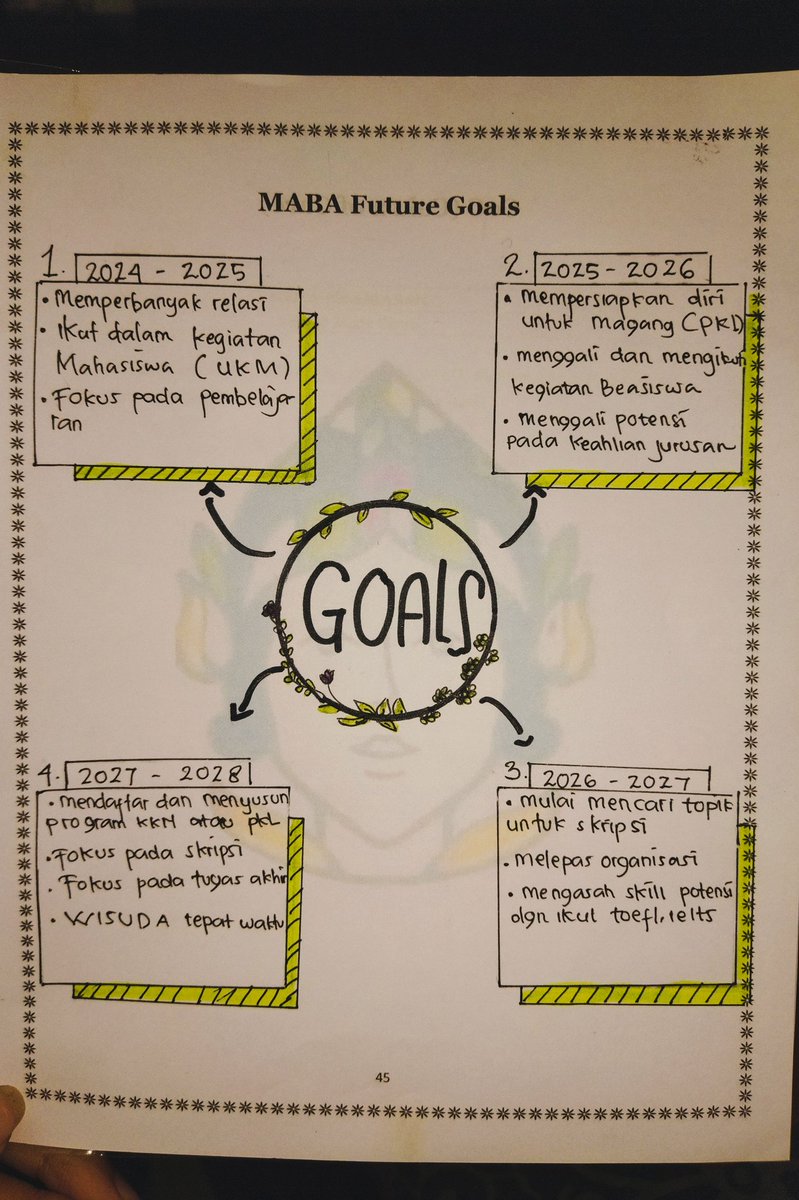 MABA Future Goals
1. 2024 - 2025
• Memperbanyak relasi
• Ikut dalam kegiatan
Mahasiswa (UKM)
• Fokus pada pembelajar
ran
2. 2025 - 2026
• mempersiapkan diri
untuk magang (PKL)
• menggali dan mengikuti
kegiatan Beasiswa
• menggali potensi
pada keahlian jurusan
GOALS
4. 2027 - 2028
• mendaftar dan menyusun
program KKM atau PKL
• Fokus pada skripsi
• Fokus pada tugas akhir
• WISUDA tepat waktu
3. 2026 - 2027
• mulai mencari topik
untuk skripsi
• melepas organisasi
• mengasah skill potensi
dgn ikut toefl, ielts
45